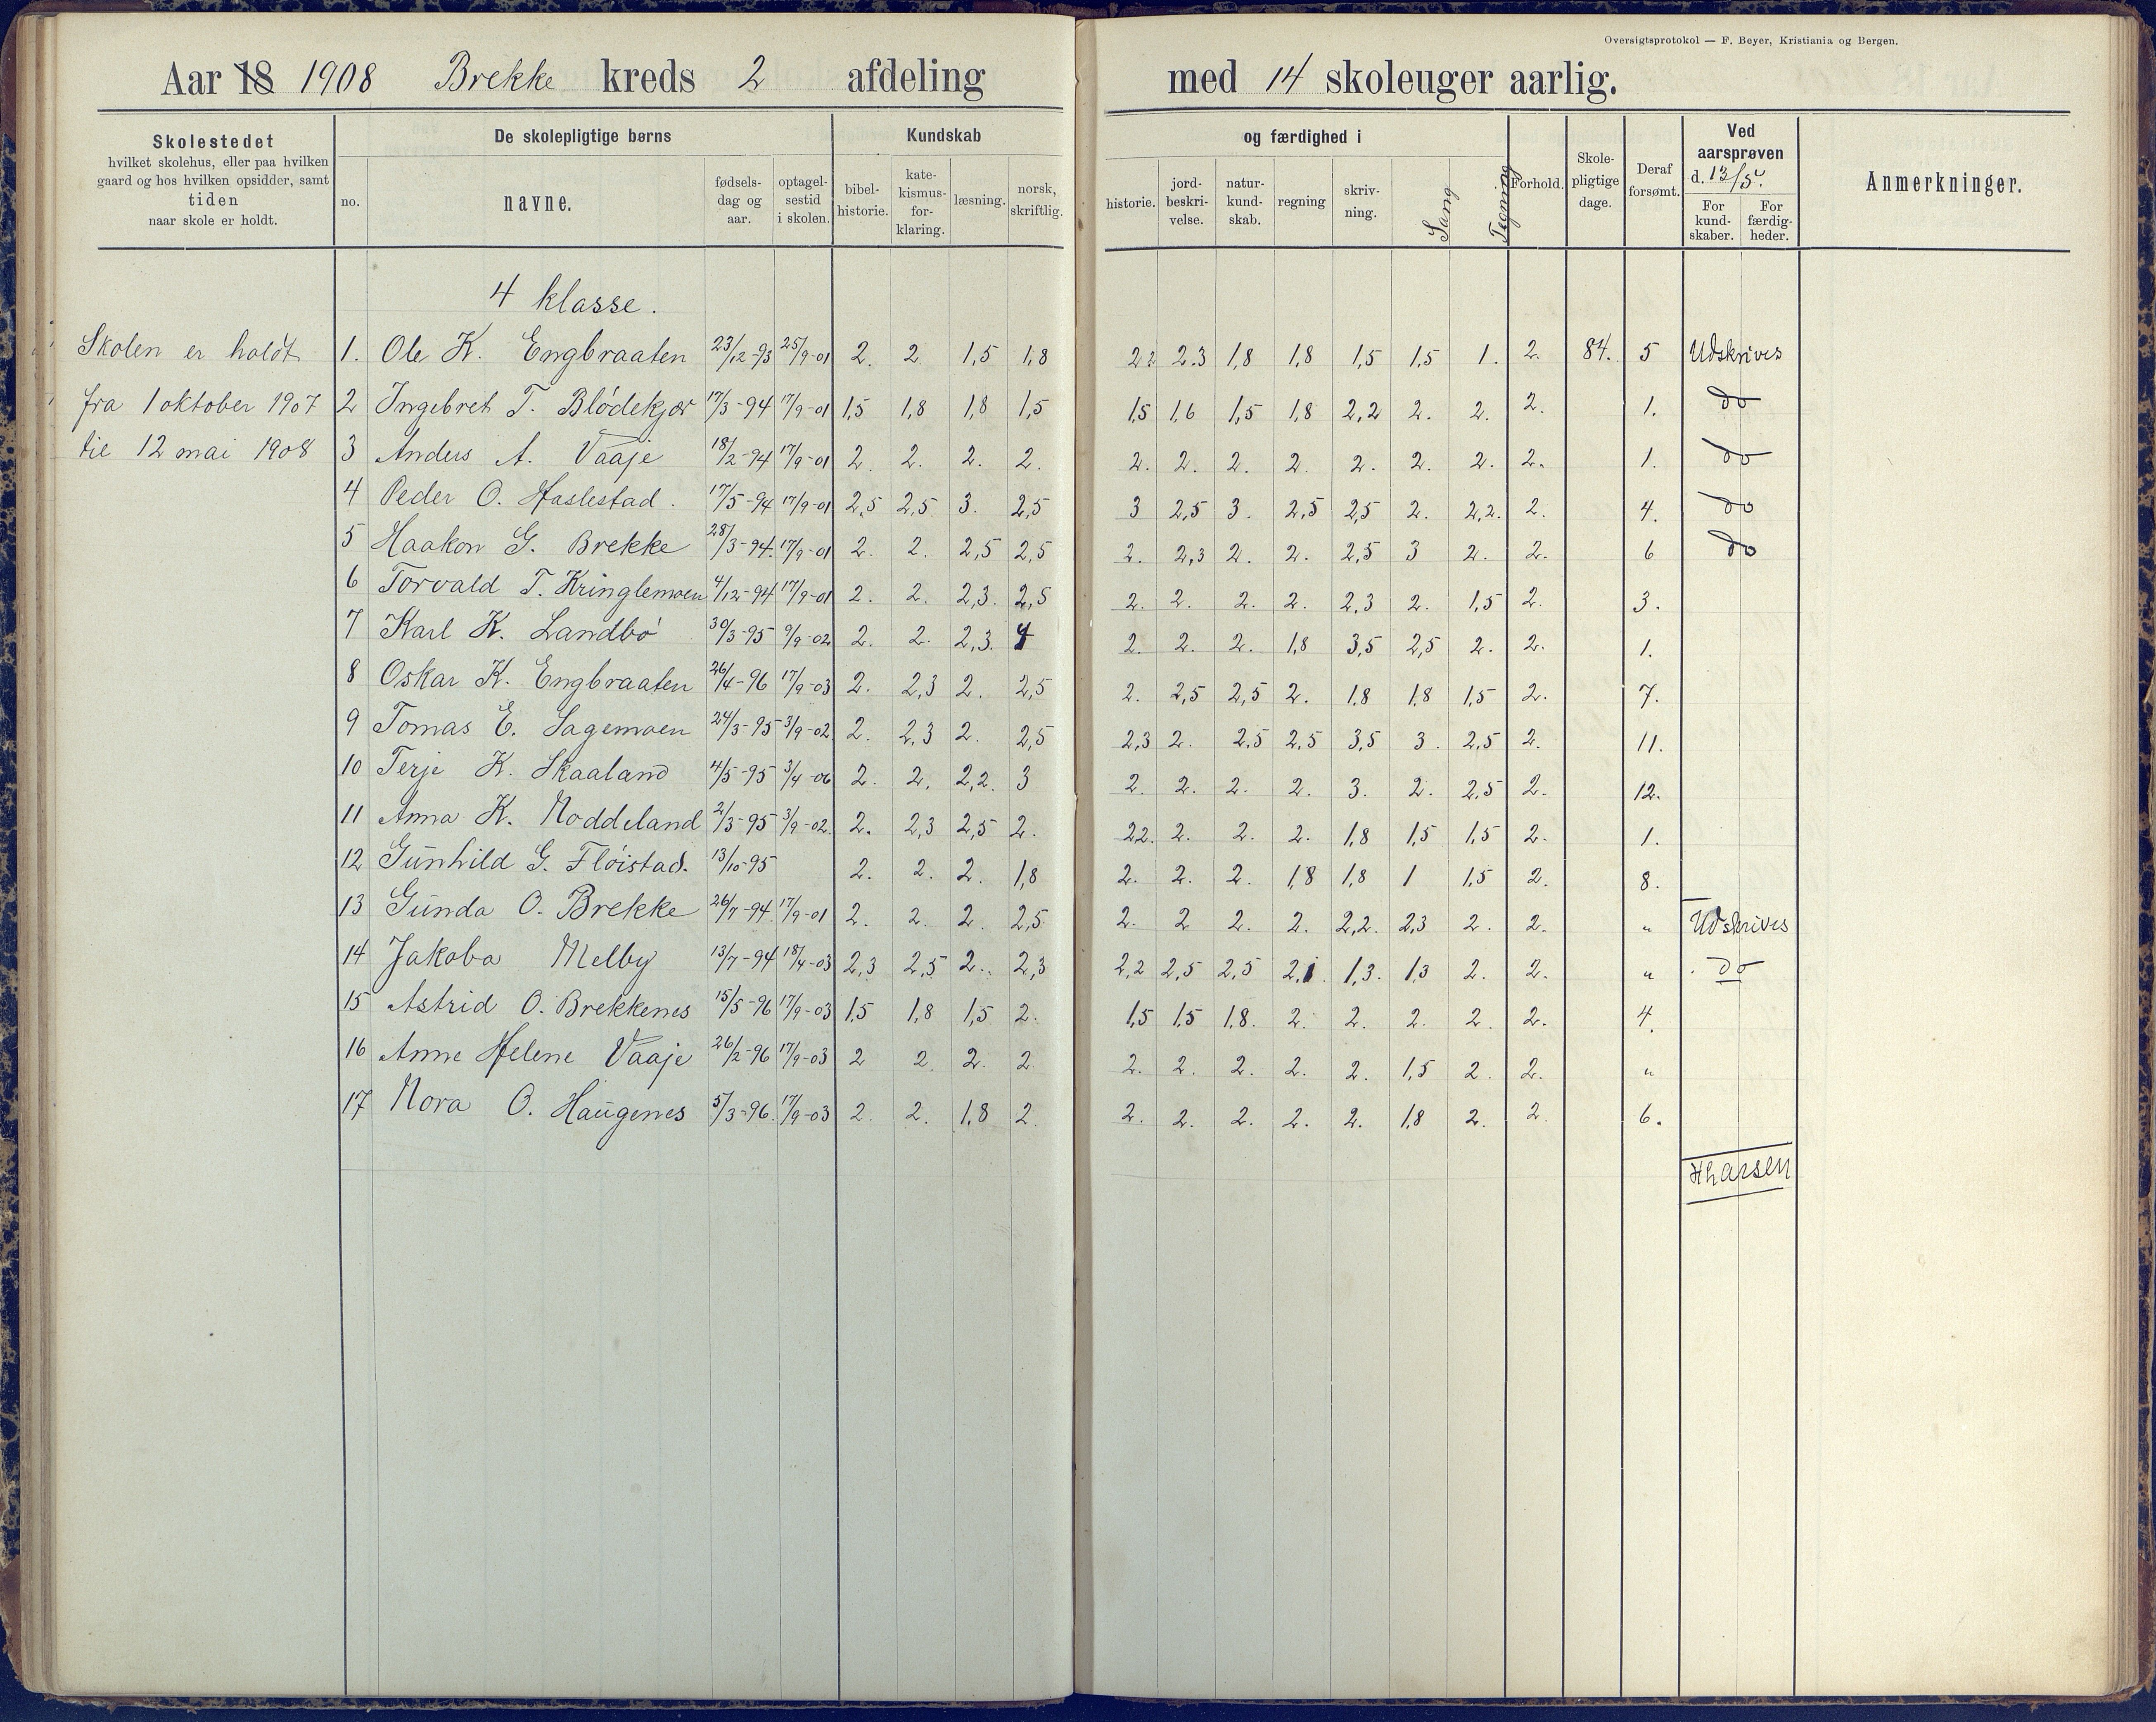 Oversigtsprotokol — F. Beyer, Kristiania og Bergen.
Aar 18 1908 Brekke kreds 2 afdeling med 14 skoleuger aarlig.
Skolestedet
hvilket skolehus, eller paa hvilken
gaard og hos hvilken opsidder, samt
tiden
naar skole er holdt.
De skolepligtige børns
no.
navne.
fødsels-
dag og
aar.
optagel-
sestid
i skolen.
Kundskab
bibel-
historie.
kate-
kismus-
for-
klaring.
læsning.
norsk,
skriftlig.
og færdighed i
historie.
jord-
beskri-
velse.
natur-
kund-
skab.
regning
skriv-
ning.
Sang
Tegning
Forhold.
Skole-
pligtige
dage.
Deraf
forsømt.
Ved
aarsprøven
d. 13/5.
For
kund-
skaber.
For
færdig-
heder.
Anmerkninger.
4 klasse.
Skolen er holdt
fra 1 oktober 1907
til 12 mai 1908
1. Ole K. Engbraaten 23/12-93 25/9-01 2. 2. 1,5 1,8 2,2 2.3 1,8 1,8 1,5 1,5 1. 2. 84. 5 Udskrives
2 Ingebret T. Blödekjær 17/3-94 17/9-01 1,5 1,8 1,8 1,5 1,5 1,6 1,5 1,8 2,2 2. 2. 2. 1. do
3 Anders A. Vaaje 18/2-94 17/9-01 2. 2. 2. 2. 2. 2. 2. 2. 2. 2. 2. 2. 1. do
4 Peder O. Haslestad. 17/5-94 17/9-01 2,5 2,5 3. 2,5 3 2,5 3. 2,5 2,5 2. 2,2. 2. 4. do
5 Haakon G. Brekke 28/3-94. 17/9-01 2. 2. 2,5 2,5 2. 2,3 2. 2. 2,5 3 2. 2. 6 do
6 Torvald T. Kringlemoen 4/12-94 17/9-01 2. 2. 2,3. 2,5 2. 2. 2. 2. 2,3 2. 1,5 2. 3.
7 Karl K. Landbö 30/3-95 9/9-02 2. 2. 2,3. 4 2. 2. 2. 1,8 3,5 2,5 2. 2. 1.
8 Oskar K. Engbraaten 26/4-96 17/9-03 2. 2,3 2. 2,5 2. 2,5 2,5 2. 1.8 1.8 1,5 2. 7.
9 Tomas E. Sagemoen 24/3-95 3/9-02 2. 2,3 2. 2,5 2,3 2. 2,5 2,5 3,5 3. 2,5 2. 11.
10 Terje K. Skaaland 4/5-95 3/4-06 2. 2. 2,2. 3 2. 2. 2. 2. 3. 2. 2,5 2. 12.
11 Anna K. Noddeland 2/3-95 3/9-02. 2. 2,3 2,5 2. 2,2. 2. 2. 2. 1,8 1,5 1,5 2. 1.
12 Gunhild G. Flöistad. 13/10-95 2. 2. 2. 1,8 2. 2. 2. 1,8 1,8 1 1,5 2. 8.
13 Gunda O. Brekke 26/7-94. 17/9-01 2. 2. 2. 2,5. 2. 2 2. 2. 2,2. 2,3 2. 2. " Udskrives
14 Jakoba Melby 13/7-94 18/4-03 2,3 2,5 2. 2,3 2,2 2,5 2,5 2,1. 1,3. 1,3 2. 2. " do
15 Astrid O. Brekkenes 15/5-96 17/9-03 1,5 1,8 1,5 2. 1,5 1,5 1,8. 2. 2. 2. 2. 2. 4.
16 Anne Helene Vaaje 26/2-96 17/9-03 2 2. 2. 2. 2. 2. 2. 2. 2. 1,5 2. 2. "
17 Nora O. Haugenes 5/3-96. 17/9-03 2. 2. 1,8 2. 2. 2. 2. 2. 2. 1,8 2. 2. 6.
H Larsen